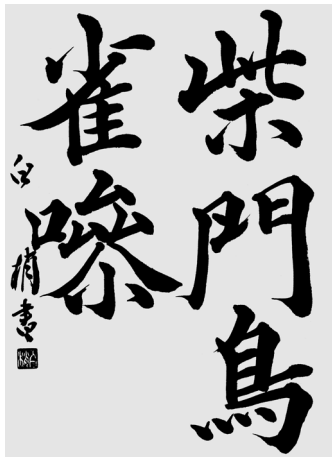 柴門鳥
雀噪
白書